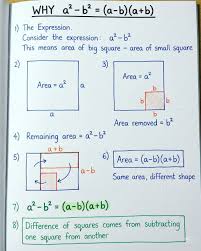 WHY a² - b² = (a-b)(a+b)
1) The Expression.
Consider the expression: a² - b²
This means area of big square - area of small square
2)
3)
Area = a²
a
a
Area = a²
b
b
b
Area removed = b²
4) Remaining area = a² - b²
5)
a+b
a-b
6) Area = (a-b)(a+b)
Same area, different shape
7) a² - b² = (a-b)(a+b)
8) Difference of squares comes from subtracting
one square from another